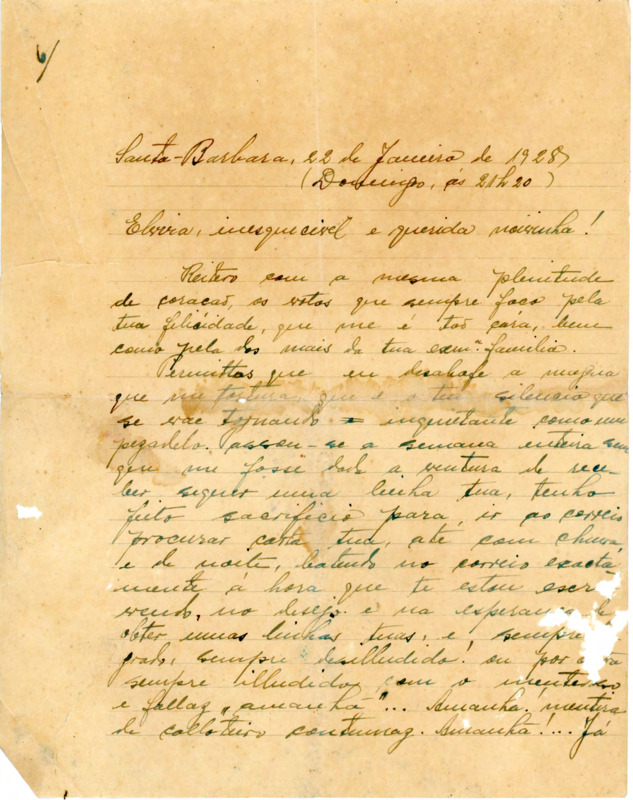 6/
Santa-Barbara, 22 de Janeiro de 1928
(Domingo, ás 21h20)
Elvira, inesquicivel e querida noivinha!
Reitero com a mesma plenitude
de coracaõ, os votos que sempre faco pela
tua felicidade, que me é taõ cára, bem
como pela dos mais da tua exmª. familia.
Permittas que eu desabafe a magua
que me tortura, que é o teu silencio que
se vae tornando inquietante como um
pezadelo. assou-se a semana inteira sem
que me fosse dada a ventura de rece-
ber siquer uma linha tua, tenho
feito sacrificio para ir ao correio
procurar carta tua, até com chuva
e de noite, batendo no correio exacta-
mente á hora que te estou escre
vendo, no desejo e na esperança de
obter umas linhas tuas, e! sempre
grado, sempre desilludido! ou por
sempre illudido com o mentiroso
e fallaz "amanhã"... Amanhã! mentira
de calloteiro contumaz. Amanhã!... Já